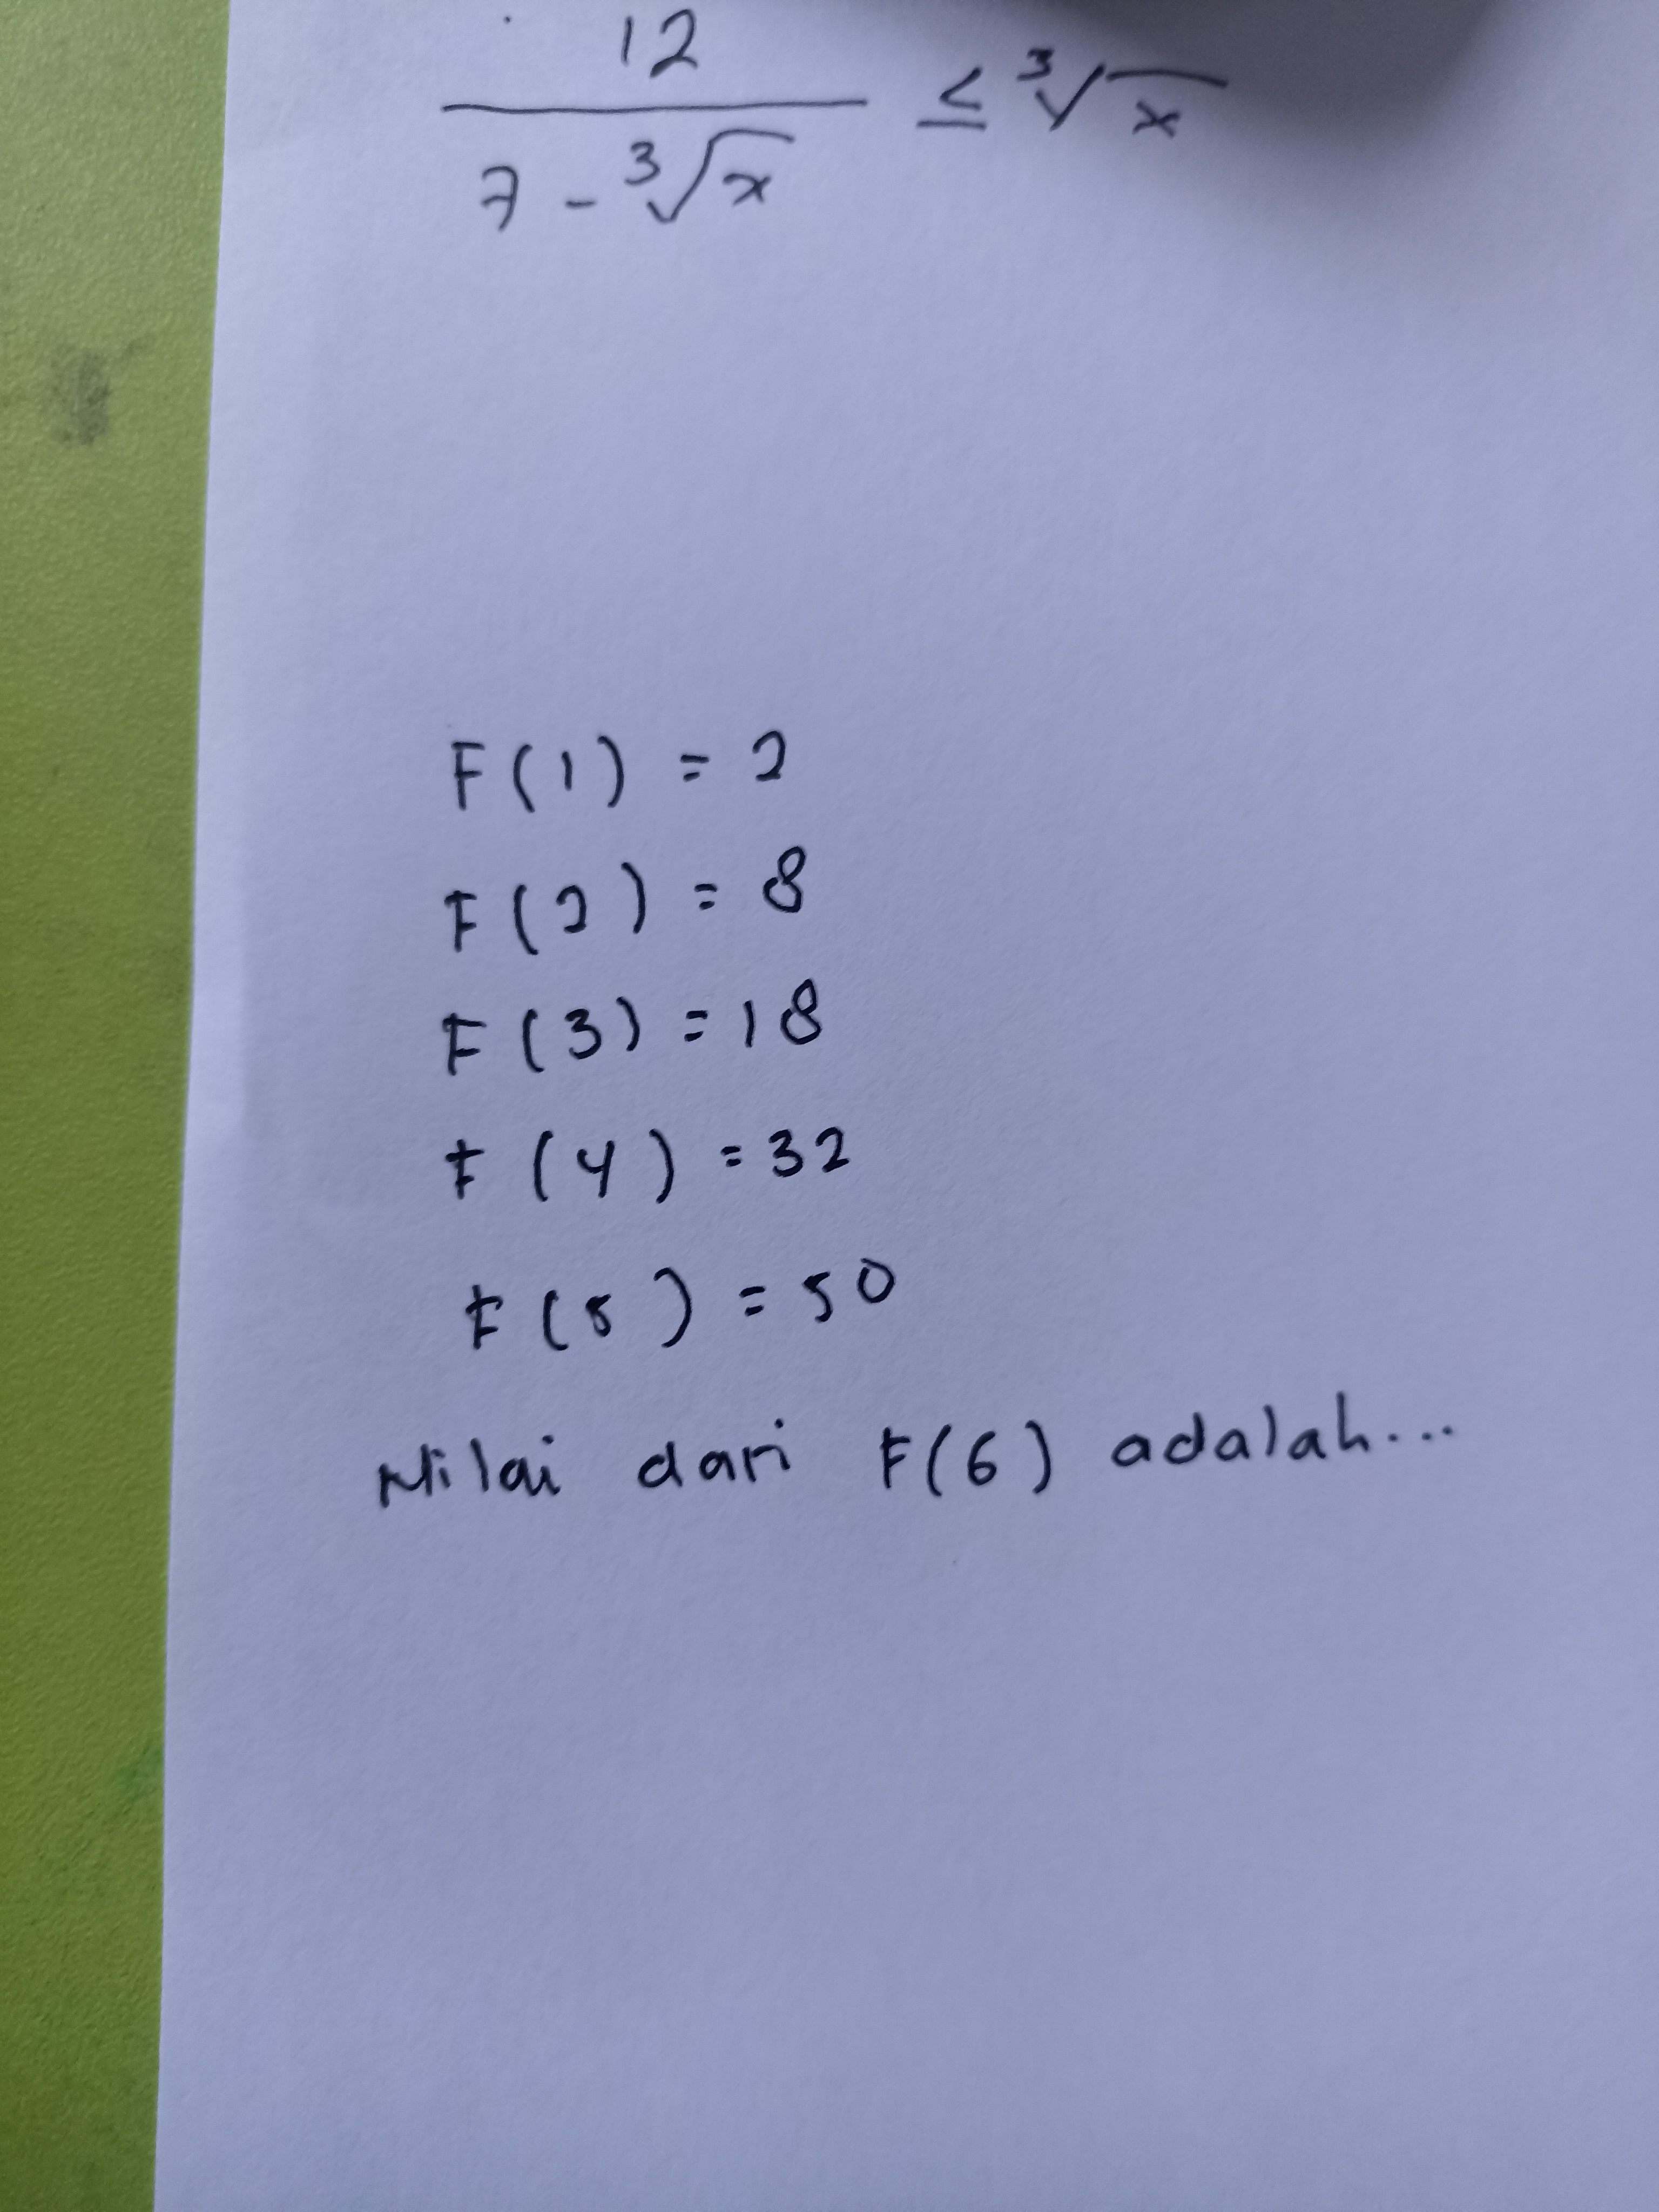 12
7 - ³√x ≤ ³√x
F(1) = 2
F(2) = 8
F(3) = 18
F(4) = 32
F(5) = 50
Nilai dari F(6) adalah...